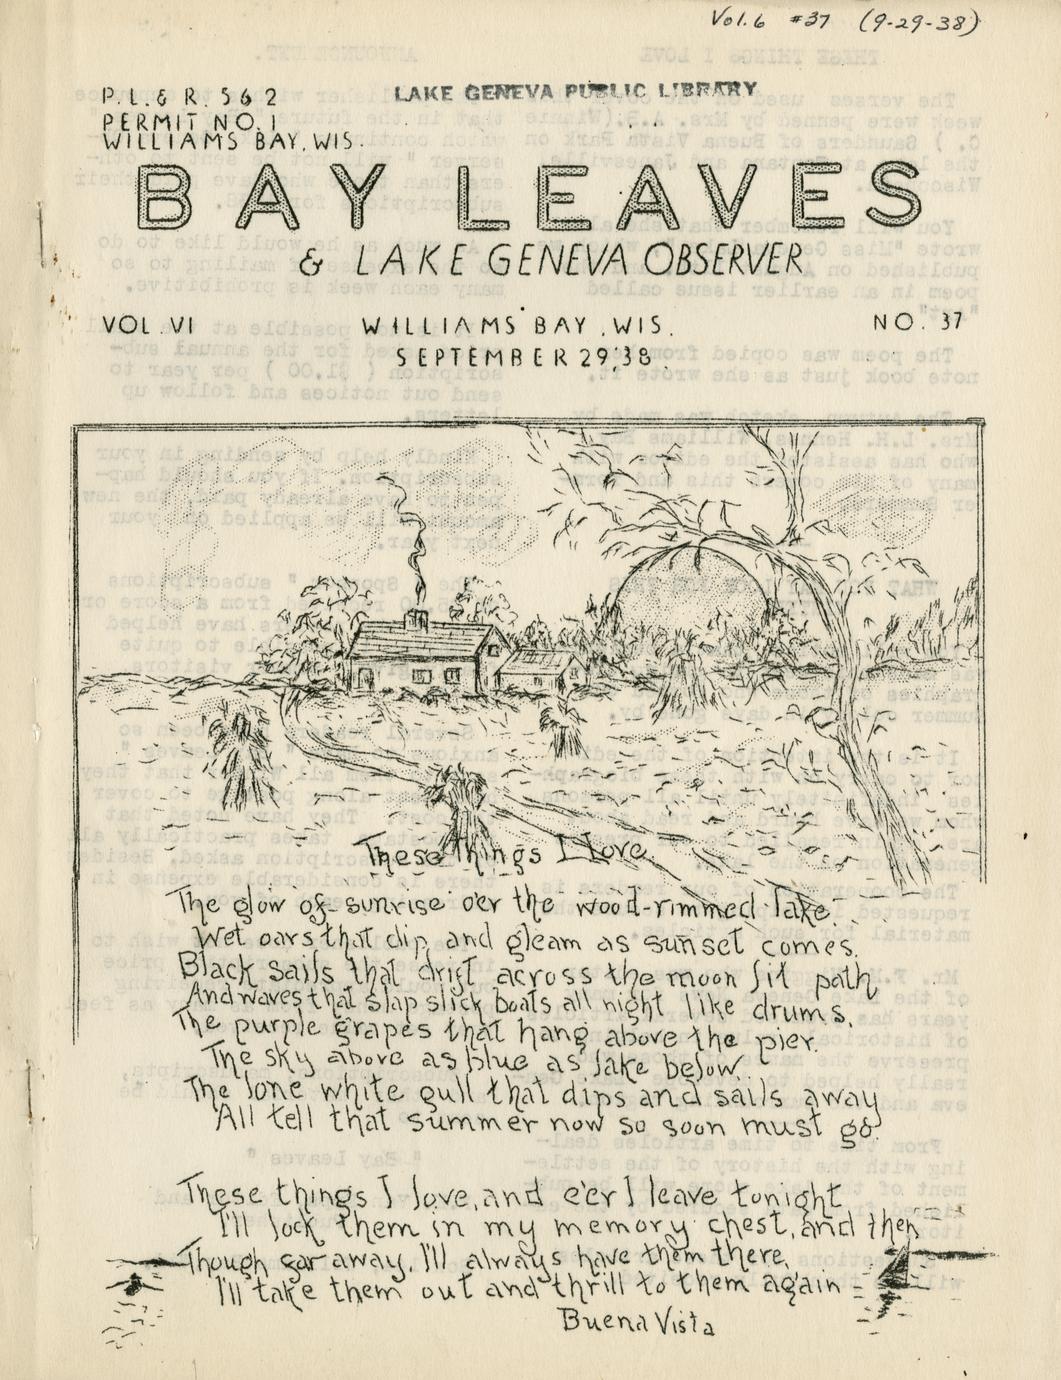 Vol. 6 #37 (9-29-38)
LAKE GENEVA PUBLIC LIBRARY
P. L. & R. 562
PERMIT NO. 1
WILLIAMS BAY, WIS.
BAY LEAVES
& LAKE GENEVA OBSERVER
VOL. VI WILLIAMS BAY, WIS. NO. 37
SEPTEMBER 29, '38
These Things I Love
The glow of sunrise o'er the wood-rimmed lake.
Wet oars that dip and gleam as sunset comes.
Black sails that drift across the moon lit path
And waves that slap slick boats all night like drums.
The purple grapes that hang above the pier.
The sky above as blue as lake below.
The lone white gull that dips and sails away
All tell that summer now so soon must go.
These things I love, and e'er I leave tonight
I'll lock them in my memory chest, and then
Though far away, I'll always have them there,
I'll take them out and thrill to them again
Buena Vista